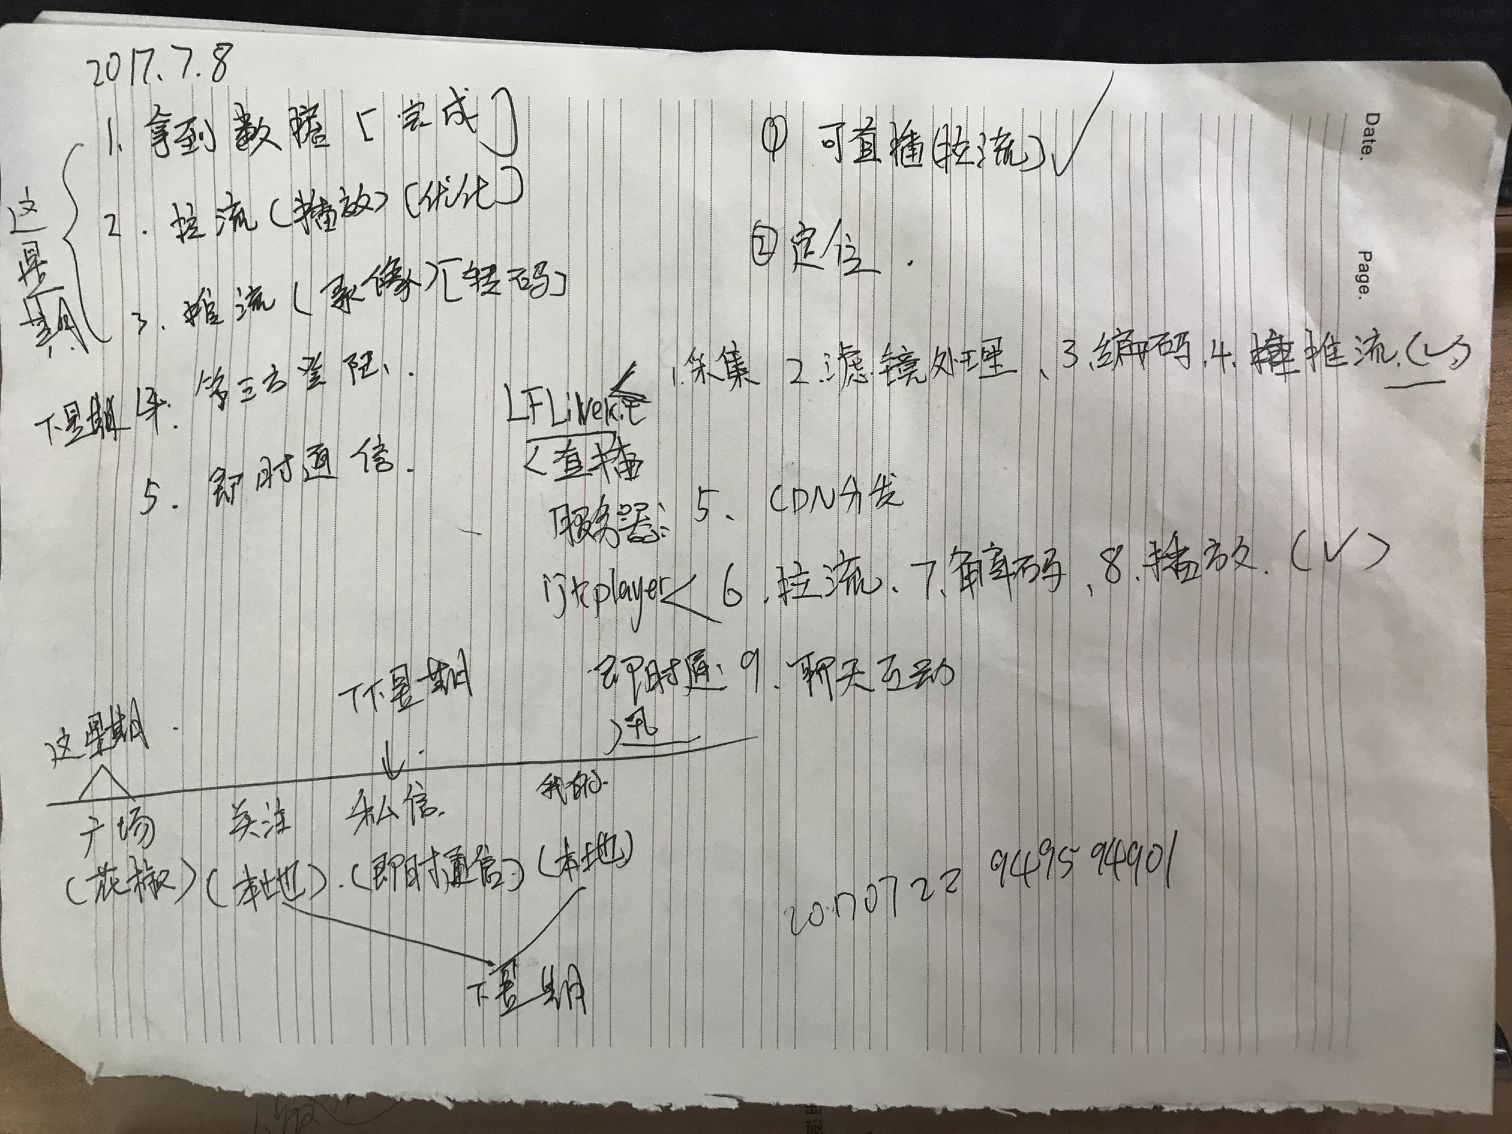 2017.7.8
1. 拿到数据 [完成]
2. 拉流 (播放) [优化]
3. 推流 (录像) [转码]
这星期
下星期 4. 第三方登陆.
5. 即时通信.
① 可直播(拉流) ✓
② 定位.
Date.
Page.
LFLivekit < 1.采集 2.滤镜处理、3.编码、4.推流.(✓)
<直播
服务器: 5、CDN分发
ijkplayer < 6.拉流、7.解码、8.播放.(✓)
即时通讯 9.聊天互动
这星期.
下下星期
广场 关注 私信. 我的.
(花椒) (本地). (即时通信) (本地)
下星期
20170722 9495 94901